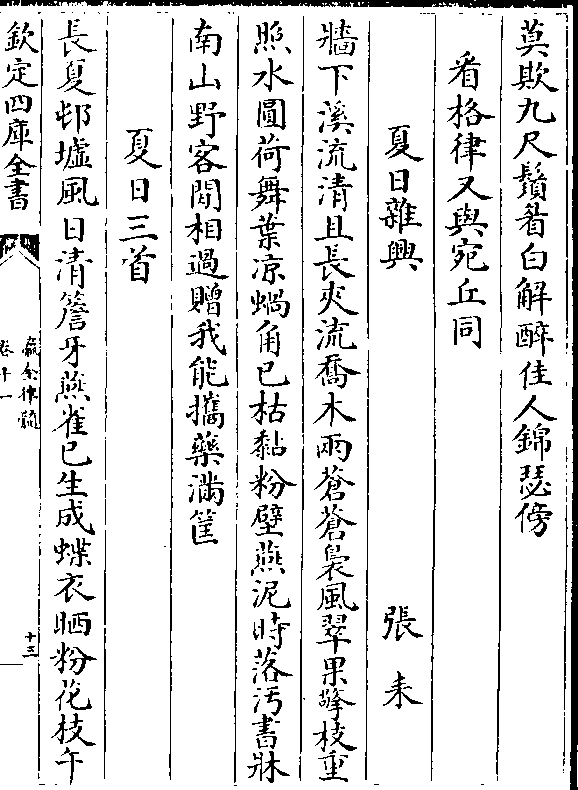 莫欺九尺鬚眉白解醉佳人錦瑟傍
看格律又與宛丘同
夏日雜興　張耒
牆下溪流清且長夾流喬木兩蒼蒼裊風翠果擎枝重
照水圓荷舞葉凉蝸角已枯黏粉壁燕泥時落汚書牀
南山野客閒相過贈我能攜藥滿筐
夏日三首
長夏邨墟風日清簷牙燕雀已生成蝶衣晒粉花枝午
欽定四庫全書
瀛奎律髓
卷十一
十三